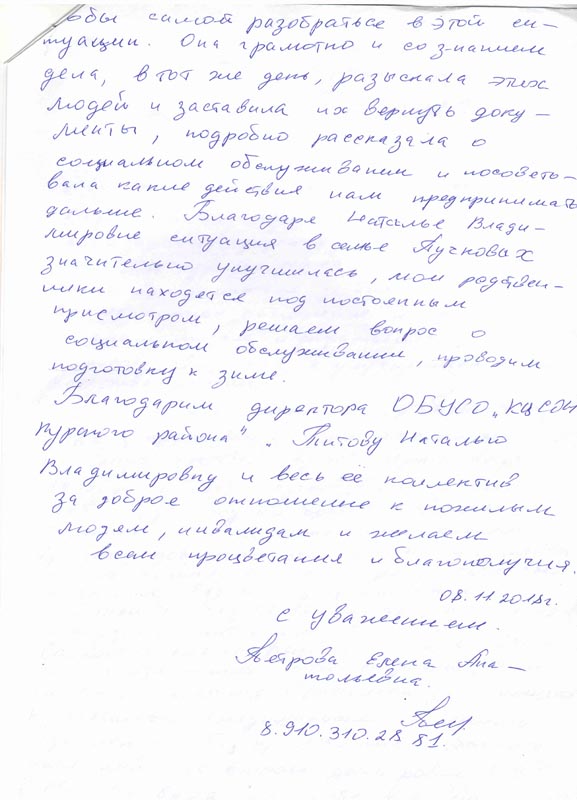 обы самой разобраться в этой си-
туации. Она грамотно и со знанием
дела, в тот же день, разыскала этих
людей и заставила их вернуть доку-
менты, подробно рассказала о
социальном обслуживании и посовето-
вала какие действия нам предпринимать
дальше. Благодаря Наталье Влади-
мировне ситуация в семье Пучковых
значительно улучшилась, мои родствен-
ники находятся под постоянным
присмотром, решаем вопрос о
социальном обслуживании, проводим
подготовку к зиме.
Благодарим директора ОБУСО „КЦСОН
Курского района" . Титову Наталью
Владимировну и весь её коллектив
за доброе отношение к пожилым
людям, инвалидам и желаем
всем процветания и благополучия.
08.11.2018г.
с уважением.
Петрова Елена Ана-
тольевна.
8.910.310.28 81.